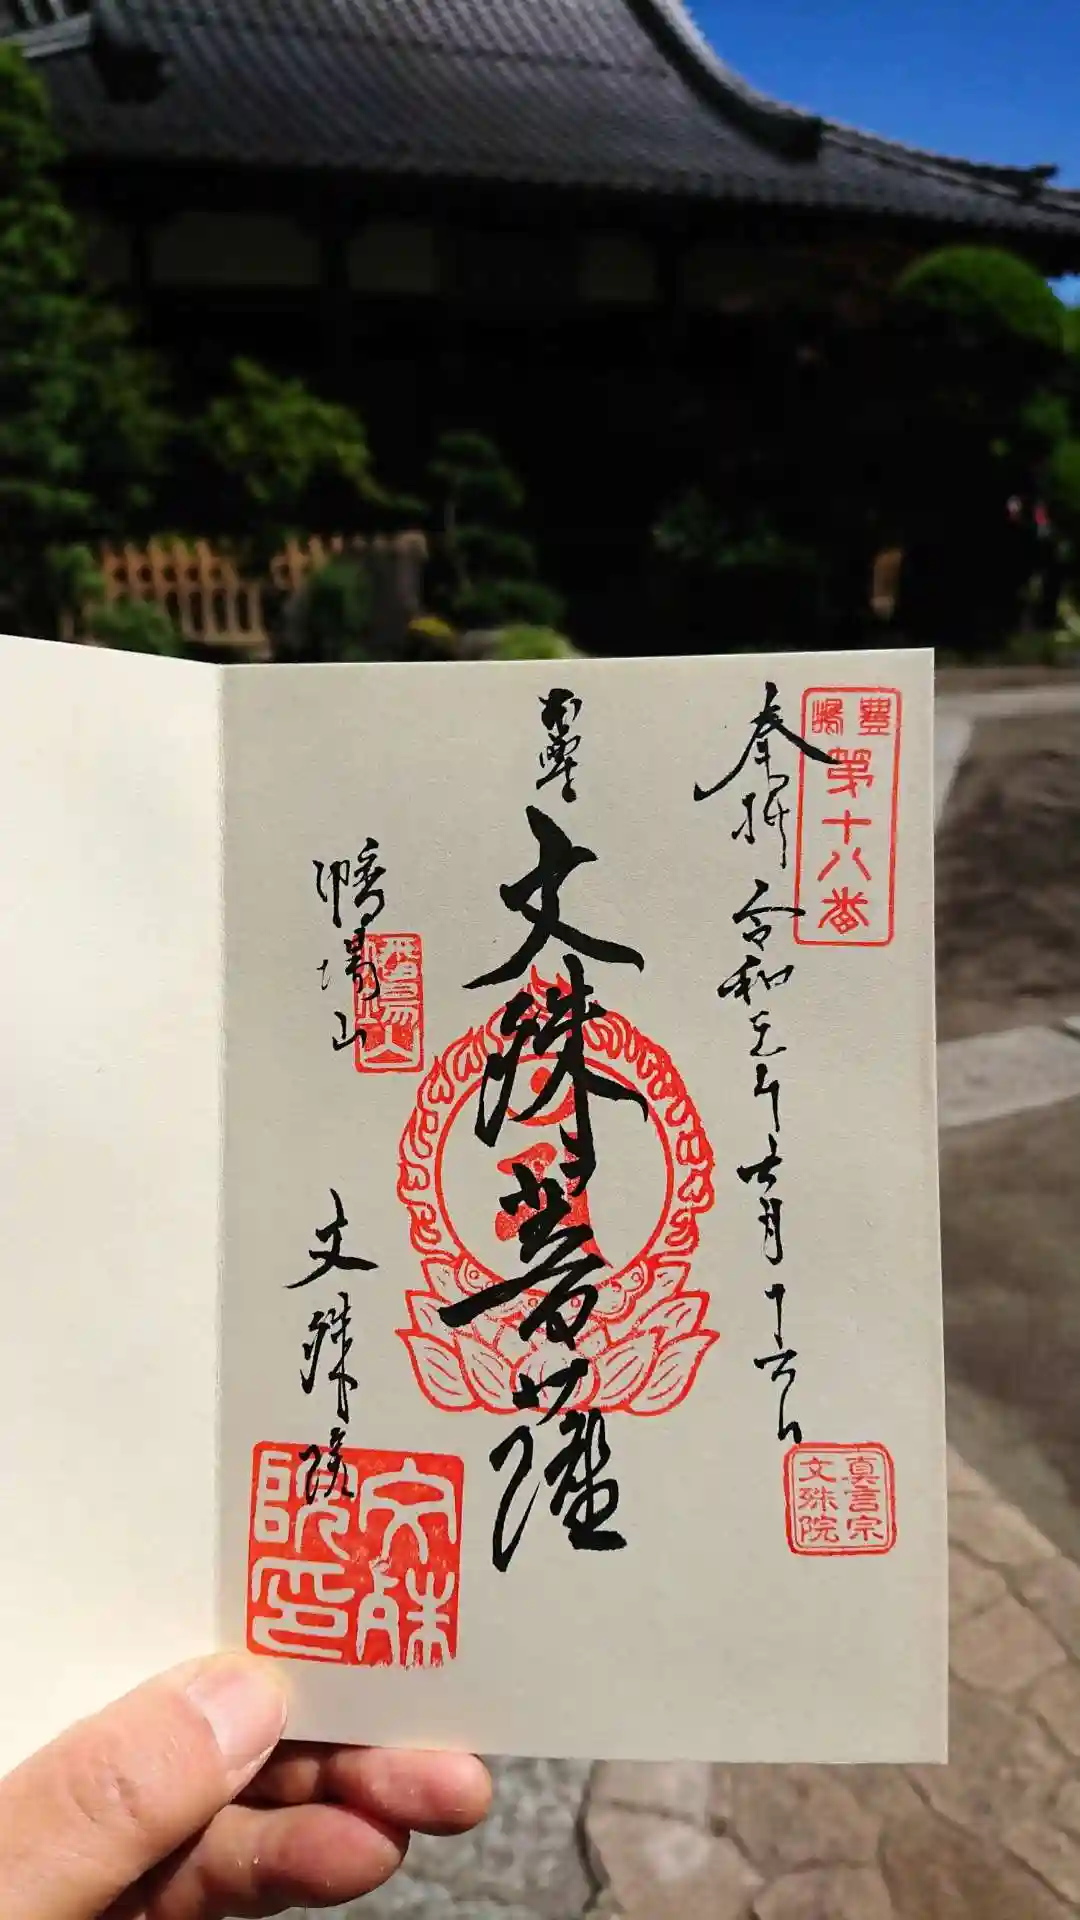 豊嶋
第十八番
奉拝 令和 年 月十六日
真言宗
文殊院
文殊菩薩
幡場山
幡場山
文殊院
文殊院印